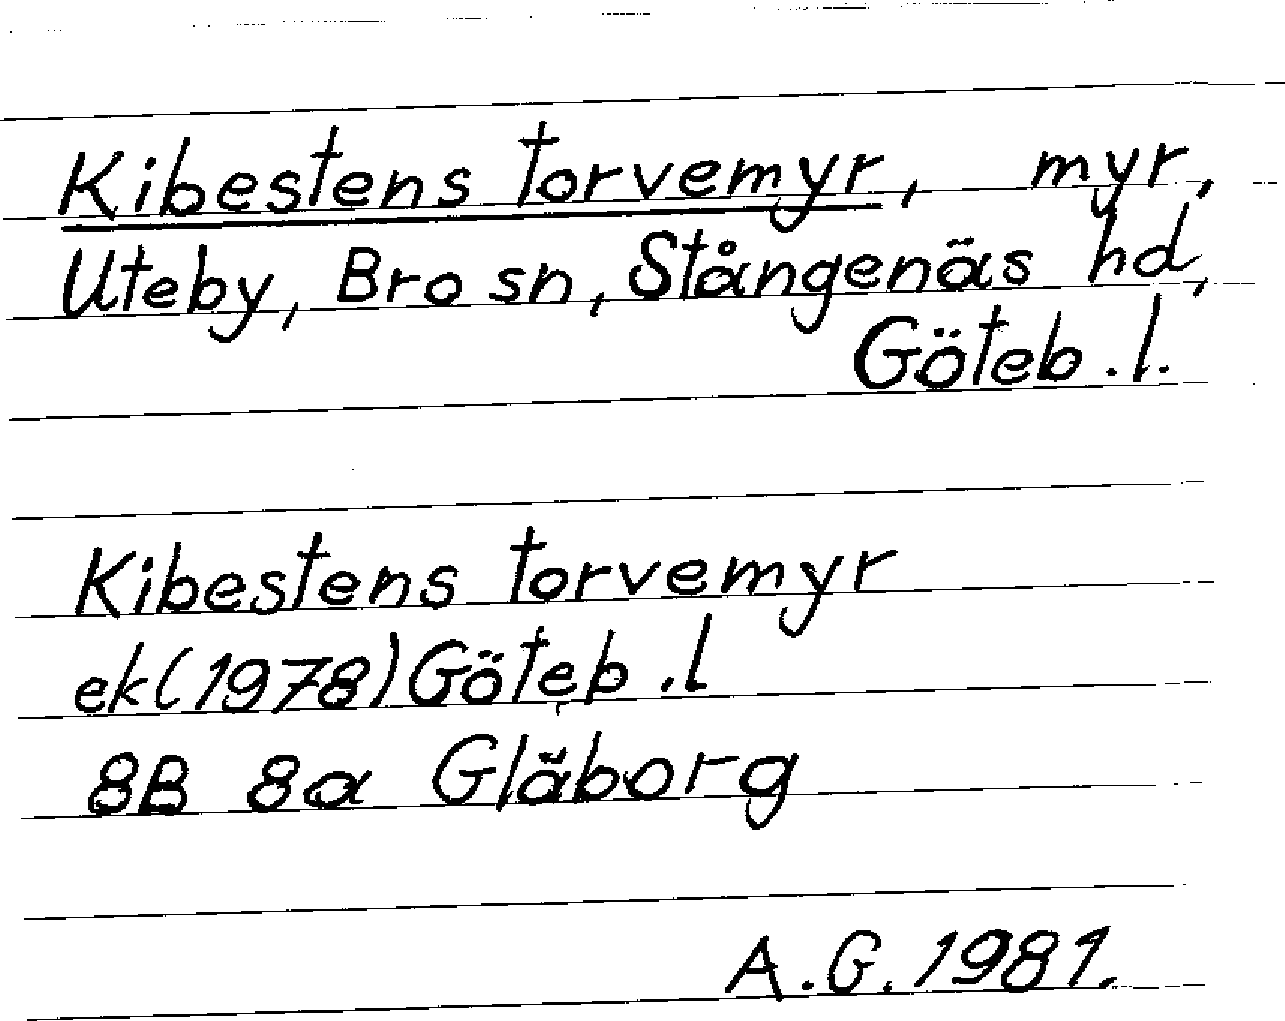 Kibestens torvemyr, myr,
Uteby, Bro sn, Stångenäs hd,
Göteb.l.
Kibestens torvemyr
ek(1978) Göteb.l
8B 8a Gläborg
A.G. 1981.